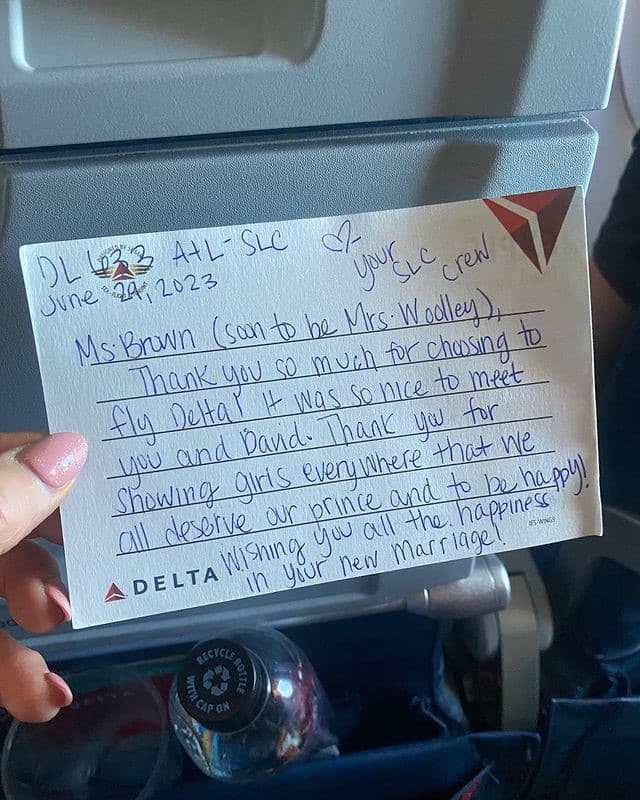 DL 1033 ATL-SLC
June 29, 2023
♡- your SLC crew
Ms. Brown (soon to be Mrs. Woolley),
Thank you so much for choosing to
fly Delta! It was so nice to meet
you and David. Thank you for
showing girls everywhere that we
all deserve our prince and to be happy!
Wishing you all the happiness
in your new marriage!
DELTA
IFS-WINGS
RECYCLE BOTTLE
WITH CAP ON